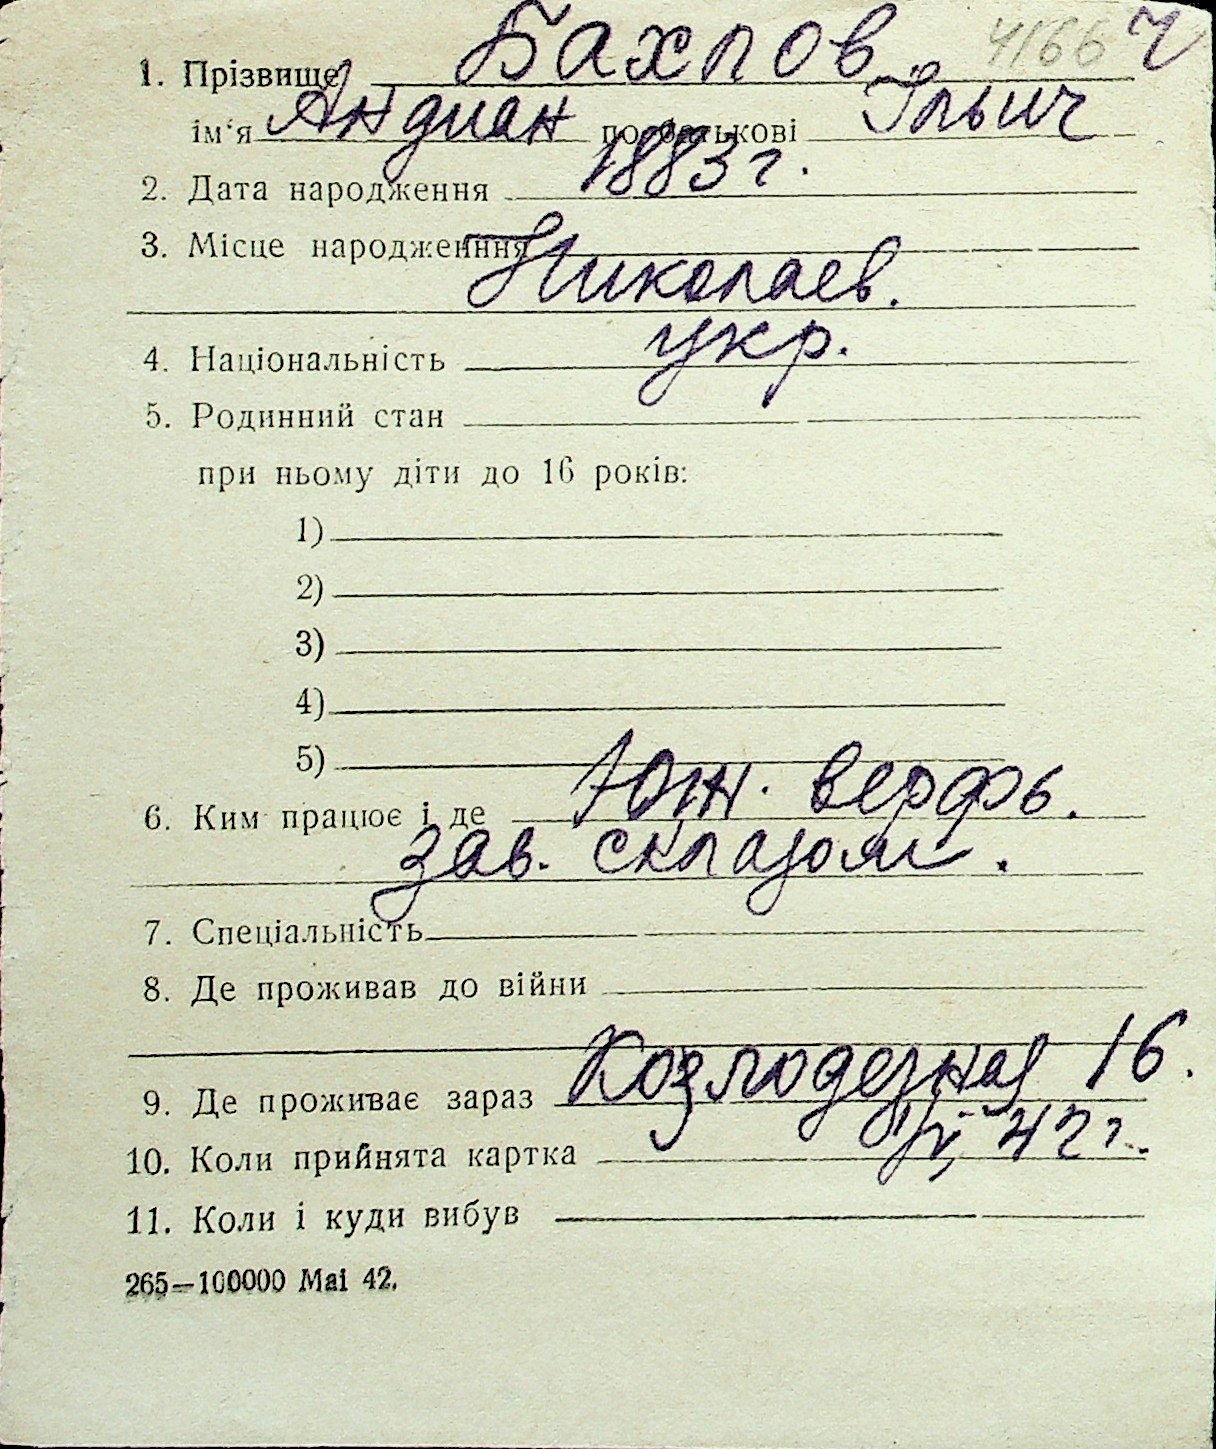 1. Прізвище Бахлов 4166 Ч
ім‘я Андиан по батькові Ільич
2. Дата народження 1883 г.
3. Місце народженння
Николаев.
4. Національність укр.
5. Родинний стан
при ньому діти до 16 років:
1)
2)
3)
4)
5)
6. Ким працює і де Юж. верфь.
зав. складом.
7. Спеціальність
8. Де проживав до війни
9. Де проживає зараз 16.
10. Коли прийнята картка 42 г.
11. Коли і куди вибув
265—100000 Mai 42.